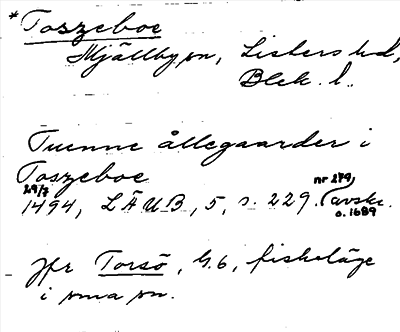 *Toszeboe
Mjällby sn, Listers hd,
Blek. l.
Tuenne ållegaarder i
Toszeboe
29/7 1494, LÄUB, 5, s. 229. nr 279, (avskr. o. 1689
Jfr Torsö, G.6, fiskeläge
i sma sn.